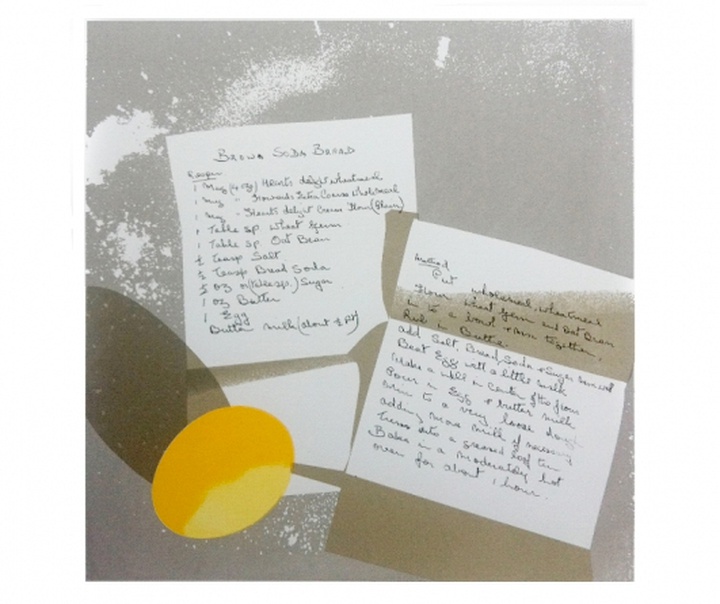 BROWN SODA BREAD
Recipe
1 Mug (4 oz) Hearts delight wheatmeal
1 Mug " Howards Extra Coarse Wholemeal
1 Mug " Hearts delight Cream Flour (Plain)
1 Table sp. Wheat Germ
1 Table sp. Oat Bran
½ Teasp Salt
½ Teasp Bread Soda
½ oz or (table sp.) Sugar
1 oz Butter
1 Egg
Butter milk (about ½ Pt)
Method
Put wholemeal, wheatmeal
Flour, wheat germ and Oat Bran
in to a bowl + mix together,
Rub in Butter
add Salt, Bread Soda + Sugar
Beat Egg with a little milk
Make a well in center of the flour
Pour in Egg + butter milk
mix to a very loose dough
adding more milk if necessary
Turn into a greased loaf tin
Bake in a moderately hot
oven for about 1 hour.